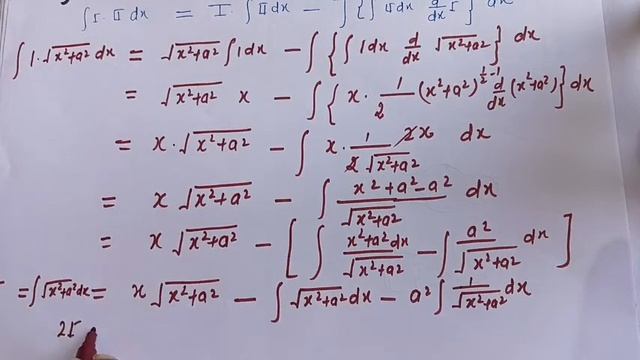 ∫I·II dx = I·∫II dx − ∫{∫II dx d/dx I} dx
∫1·√(x²+a²) dx = √(x²+a²) ∫1dx − ∫{∫1dx d/dx √(x²+a²)} dx
= √(x²+a²) x − ∫{x· 1/2 (x²+a²)^(1/2 −1) d/dx (x²+a²)} dx
= x·√(x²+a²) − ∫ x· 1/(2√(x²+a²)) 2x dx
= x √(x²+a²) − ∫ (x²+a²−a²)/√(x²+a²) dx
= x √(x²+a²) − [∫ (x²+a² dx)/√(x²+a²) − ∫ a²/√(x²+a²) dx]
= ∫√(x²+a²) dx = x √(x²+a²) − ∫√(x²+a²) dx − a² ∫ 1/√(x²+a²) dx
2I